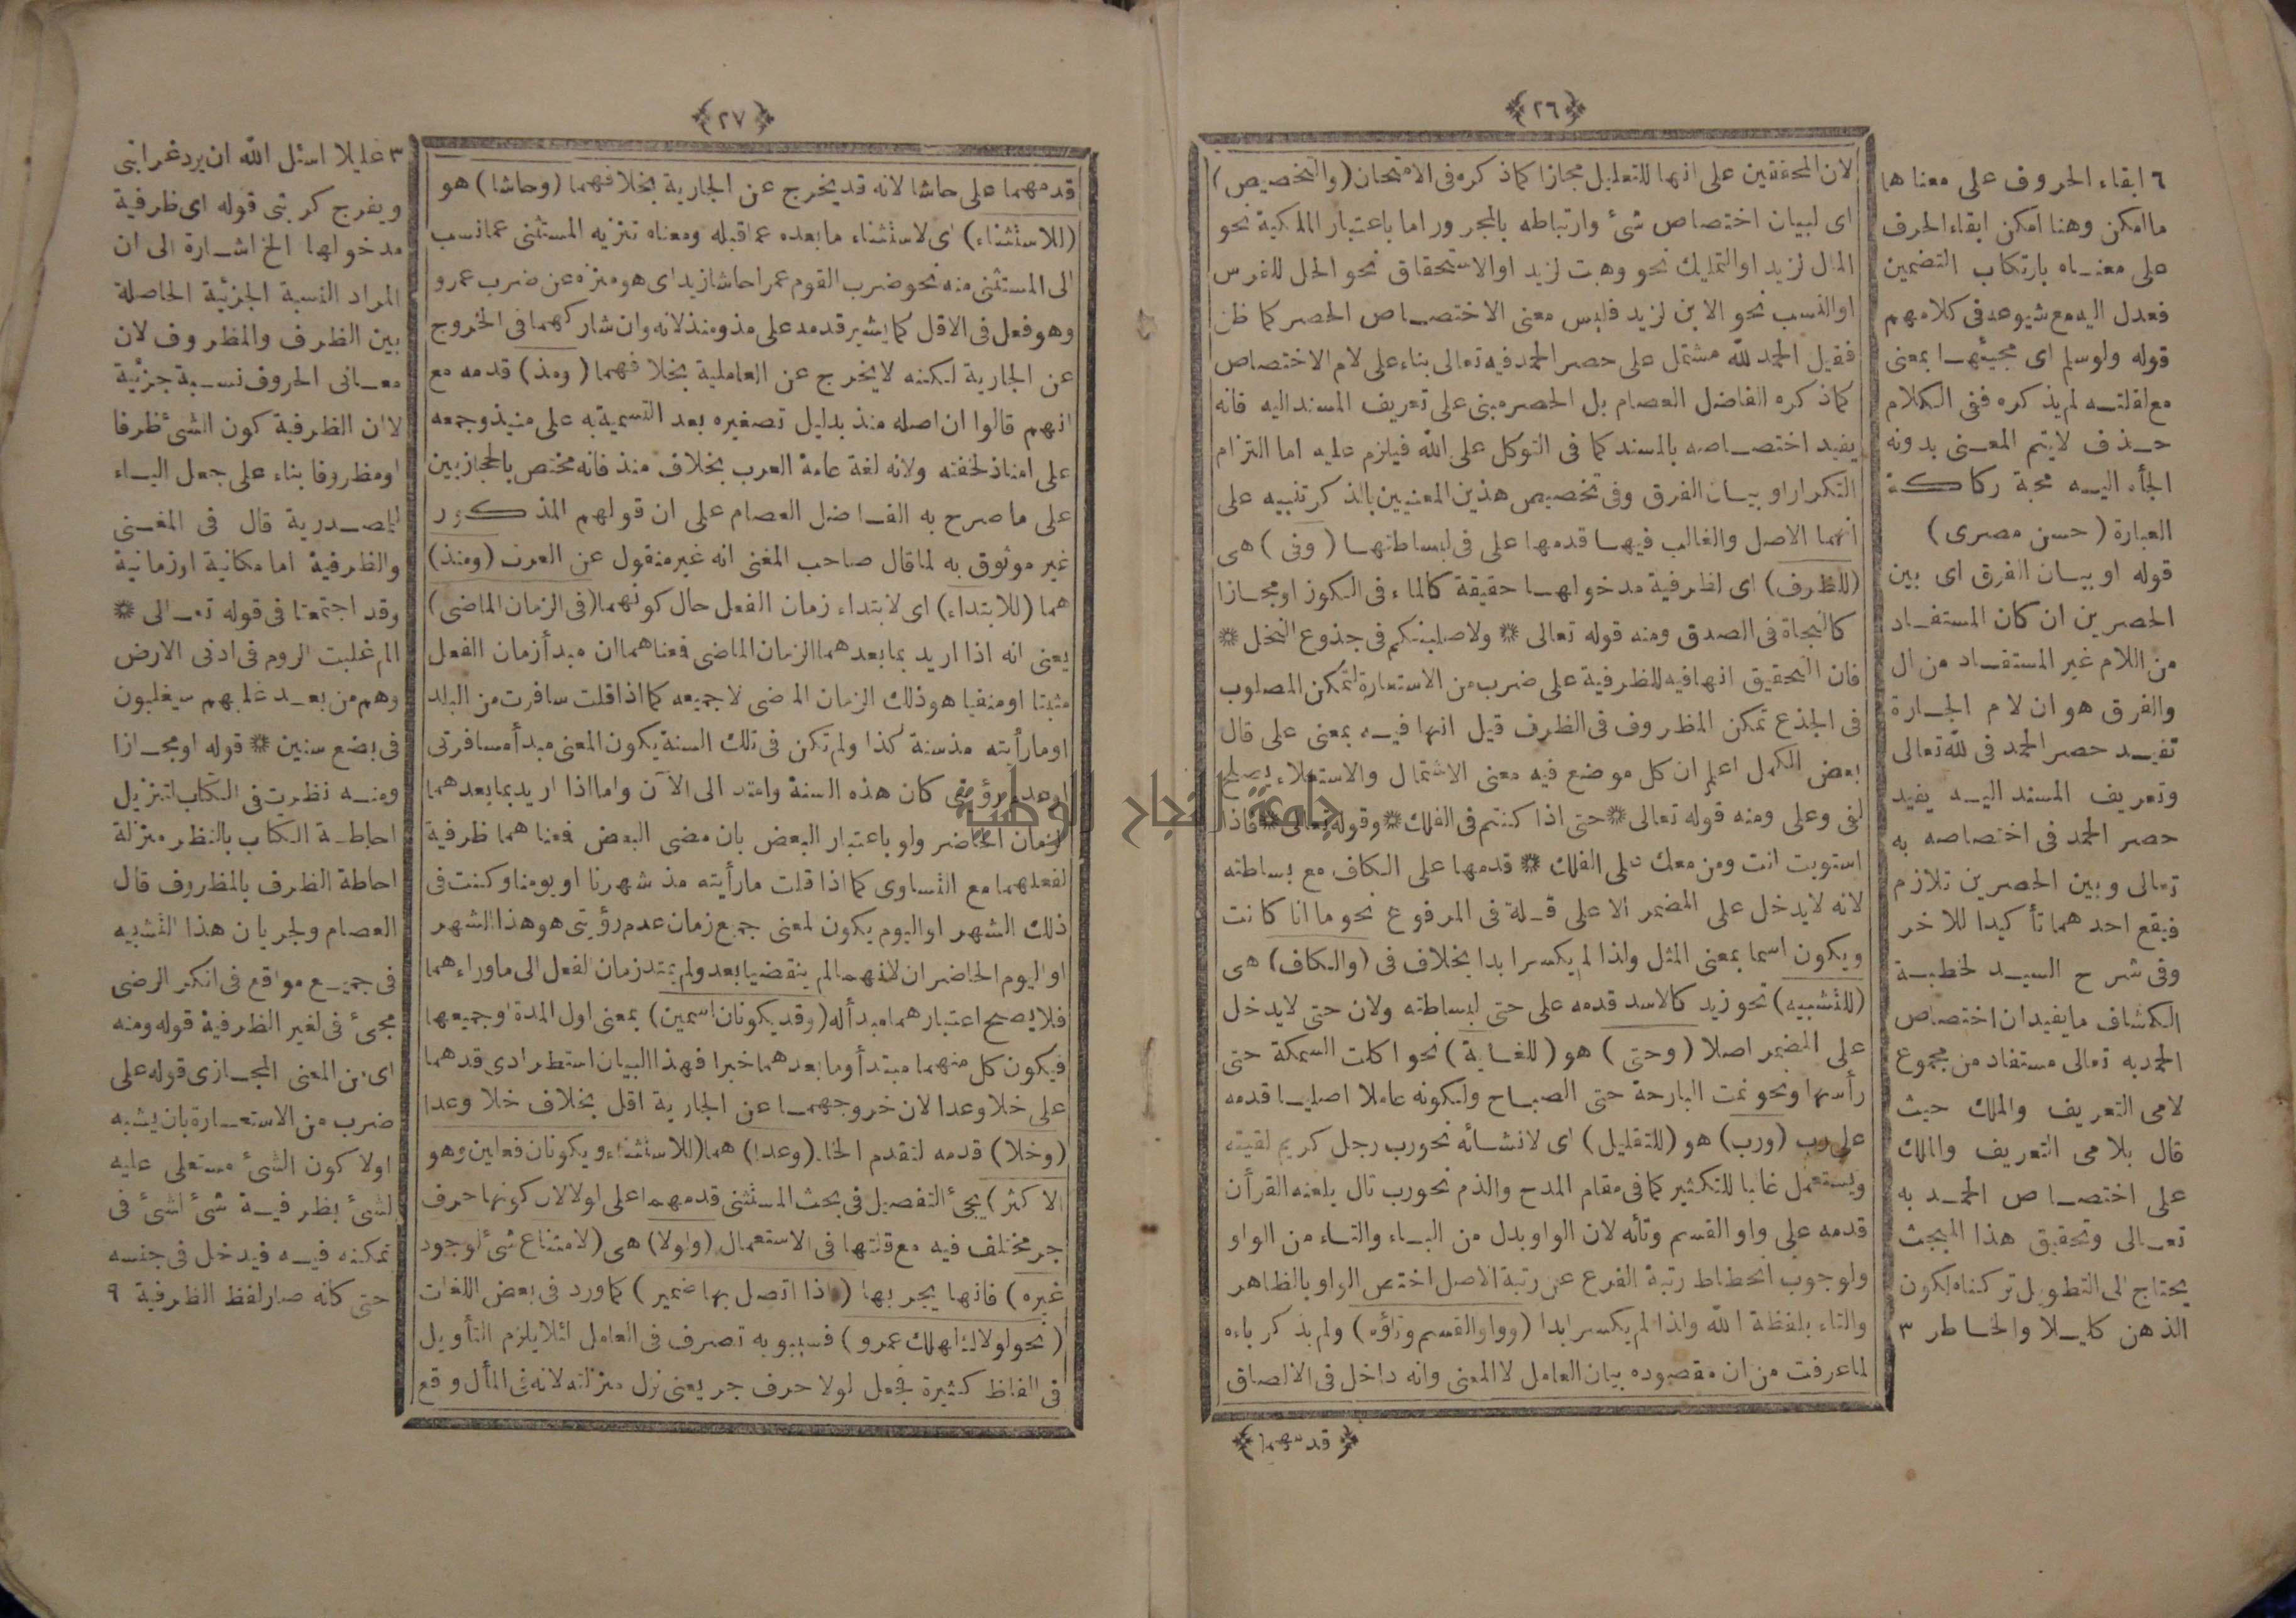 ﴿٢٦﴾
لان المحققين على انها للتعليل مجازا كما ذكره فى الامتحان (والتخصيص)
اى لبيان اختصاص شئ وارتباطه بالمجرور اما باعتبار المالكية نحو
المال لزيد او التمليك نحو وهبت لزيد او الاستحقاق نحو الجل للفرس
او النسب نحو الابن لزيد فليس معنى الاختصاص الحصر كما ظن
فقيل الحمد لله مشتمل على حصر الحمد فيه تعالى بناء على لام الاختصاص
كما ذكره الفاضل العصام بل الحصر مبنى على تعريف المسند اليه فانه
يفيد اختصاصه بالمسند كما فى التوكل على الله فيلزم عليه اما التزام
التكرار او بيان الفرق وفى تخصيص هذين المعنيين بالذكر تنبيه على
انهما الاصل والغالب فيها قدمها على فى لبساطتها (وفى) هى
(للظرف) اى لظرفية مدخولها حقيقة كالماء فى الكوز او مجازا
كالنجاة فى الصدق ومنه قوله تعالى * ولاصلبنكم فى جذوع النخل *
فان التحقيق انها فيه للظرفية على ضرب من الاستعارة لتمكن المصلوب
فى الجذع تمكن المظروف فى الظرف قيل انها فيه بمعنى على قال
بعض الكمل اعلم ان كل موضع فيه معنى الاشتمال والاستعلاء يصلح
لفى وعلى ومنه قوله تعالى * حتى اذا كنتم فى الفلك * وقوله تعالى * فاذا
استويت انت ومن معك على الفلك * قدمها على الكاف مع بساطته
لانه لا يدخل على المضمر الا على قلة فى المرفوع نحو ما انا كانت
ويكون اسما بمعنى المثل ولذا لم يكسر ابدا بخلاف فى (والكاف) هى
(للتشبيه) نحو زيد كالاسد قدمه على حتى لبساطته ولان حتى لا يدخل
على المضمر اصلا (وحتى) هو (للغاية) نحو اكلت السمكة حتى
رأسها ونحو نمت البارحة حتى الصباح ولكونه عاملا اصليا قدمه
على رب (ورب) هو (للتقليل) اى لانشائه نحو رب رجل كريم لقيته
ويستعمل غالبا للتكثير كما فى مقام المدح والذم نحو رب تال يلعنه القرأن
قدمه على واو القسم وتائه لان الواو بدل من الباء والتاء من الواو
ولوجوب انحطاط رتبة الفرع عن رتبة الاصل اختص الواو بالظاهر
والتاء بلفظة الله ولذا لم يكسر ابدا (وواو القسم وتاؤه) ولم يذكر باءه
لما عرفت من ان مقصوده بيان العامل لا المعنى وانه داخل فى الالصاق
﴿قدمهما﴾
٦ ابقاء الحروف على معناها
ما امكن وهنا امكن ابقاء الحرف
على معناه بارتكاب التضمين
فعدل اليه مع شيوعه فى كلامهم
قوله ولو سلم اى مجيئها بمعنى
مع لقلته لم يذكره ففى الكلام
حذف لا يتم المعنى بدونه
الجأه اليه محبة ركاكة
العبارة (حسن مصرى)
قوله او بيان الفرق اى بين
الحصرين ان كان المستفاد
من اللام غير المستفاد من ال
والفرق هو ان لام الجارة
تفيد حصر الحمد فى لله تعالى
وتعريف المسند اليه يفيد
حصر الحمد فى اختصاصه به
تعالى وبين الحصرين تلازم
فيقع احدهما تأكيدا للاخر
وفى شرح السيد لخطبة
الكشاف ما يفيد ان اختصاص
الحمد به تعالى مستفاد من مجموع
لامى التعريف والملك حيث
قال بلامى التعريف والملك
على اختصاص الحمد به
تعالى وتحقيق هذا المبحث
يحتاج الى التطويل تركناه لكون
الذهن كليلا والخاطر ٣
﴿٢٧﴾
قدمهما على حاشا لانه قد يخرج عن الجارية بخلافهما (وحاشا) هو
(للاستثناء) اى لاستثناء ما بعده عما قبله ومعناه تنزيه المستثنى عما نسب
الى المستثنى منه نحو ضرب القوم عمرا حاشا زيد اى هو منزه عن ضرب عمرو
وهو فعل فى الاقل كما يشير قدمه على مذ ومنذ لانه وان شاركهما فى الخروج
عن الجارية لكنه لا يخرج عن العاملية بخلافهما (ومذ) قدمه مع
انهم قالوا ان اصله منذ بدليل تصغيره بعد التسمية به على منيذ وجمعه
على امناذ لخفته ولانه لغة عامة العرب بخلاف منذ فانه مختص بالحجازيين
على ما صرح به الفاضل العصام على ان قولهم المذكور
غير موثوق به لما قال صاحب المغنى انه غير منقول عن العرب (ومنذ)
هما (للابتداء) اى لابتداء زمان الفعل حال كونهما (فى الزمان الماضى)
يعنى انه اذا اريد بما بعدهما الزمان الماضى فمعناهما ان مبدأ زمان الفعل
مثبتا او منفيا هو ذلك الزمان الماضى لا جميعه كما اذا قلت سافرت من البلد
او ما رأيته مذ سنة كذا ولم تكن فى تلك السنة يكون المعنى مبدأ مسافرتى
او عدم رؤيتى كان هذه السنة وامتد الى الآن واما اذا اريد بما بعدهما
الزمان الحاضر ولو باعتبار البعض بان مضى البعض فمعناهما ظرفية
لفعلهما مع التساوى كما اذا قلت ما رأيته مذ شهرنا او يومنا وكنت فى
ذلك الشهر او اليوم يكون لمعنى جميع زمان عدم رؤيتى هو هذا الشهر
او اليوم الحاضر ان لانهما لم ينقضيا بعد ولم يمتد زمان الفعل الى ما وراءهما
فلا يصح اعتبارهما مبدأ له (وقد يكونان اسمين) بمعنى اول المدة او جميعها
فيكون كل منهما مبتدأ وما بعدهما خبرا فهذا البيان استطرادى قدهما
على خلا وعدا لان خروجهما عن الجارية اقل بخلاف خلا وعدا
(وخلا) قدمه لتقدم الخاء (وعدا) هما (للاستثناء ويكونان فعلين وهو
الاكثر) يجئ التفصيل فى بحث المستثنى قدمهما على لولا لان كونها حرف
جر مختلف فيه مع قلتها فى الاستعمال (ولولا) هى (لامتناع شئ لوجود
غيره) فانها يجر بها (اذا اتصل بها ضمير) كما ورد فى بعض اللغات
(نحو لولاك لهلك عمرو) فسيبويه تصرف فى العامل لئلا يلزم التأويل
فى الفاظ كثيرة فجعل لولا حرف جر يعنى نزل منزلته لانه فى المأل وقع
٣ عليلا اسئل الله ان يرد غرابتى
ويفرج كربتى قوله اى ظرفية
مدخولها الخ اشارة الى ان
المراد النسبة الجزئية الحاصلة
بين الظرف والمظروف لان
معانى الحروف نسبية جزئية
لا ان الظرفية كون الشئ ظرفا
او مظروفا بناء على جعل الياء
للمصدرية قال فى المغنى
والظرفية اما مكانية او زمانية
وقد اجتمعتا فى قوله تعالى *
الم غلبت الروم فى ادنى الارض
وهم من بعد غلبهم سيغلبون
فى بضع سنين * قوله او مجازا
ومنه نظرت فى الكتاب لتنزيل
احاطة الكتاب بالنظر منزلة
احاطة الظرف بالمظروف قال
العصام ولجريان هذا التشبيه
فى جميع مواقع فى انكر الرضى
مجئ فى لغير الظرفية قوله ومنه
اى من المعنى المجازى قوله على
ضرب من الاستعارة بان يشبه
اولا كون الشئ مستعلى عليه
لشئ بظرفية شئ لشئ فى
تمكنه فيه فيدخل فى جنسه
حتى كانه صار لفظ الظرفية ٩
جامعة النجاح الوطنية